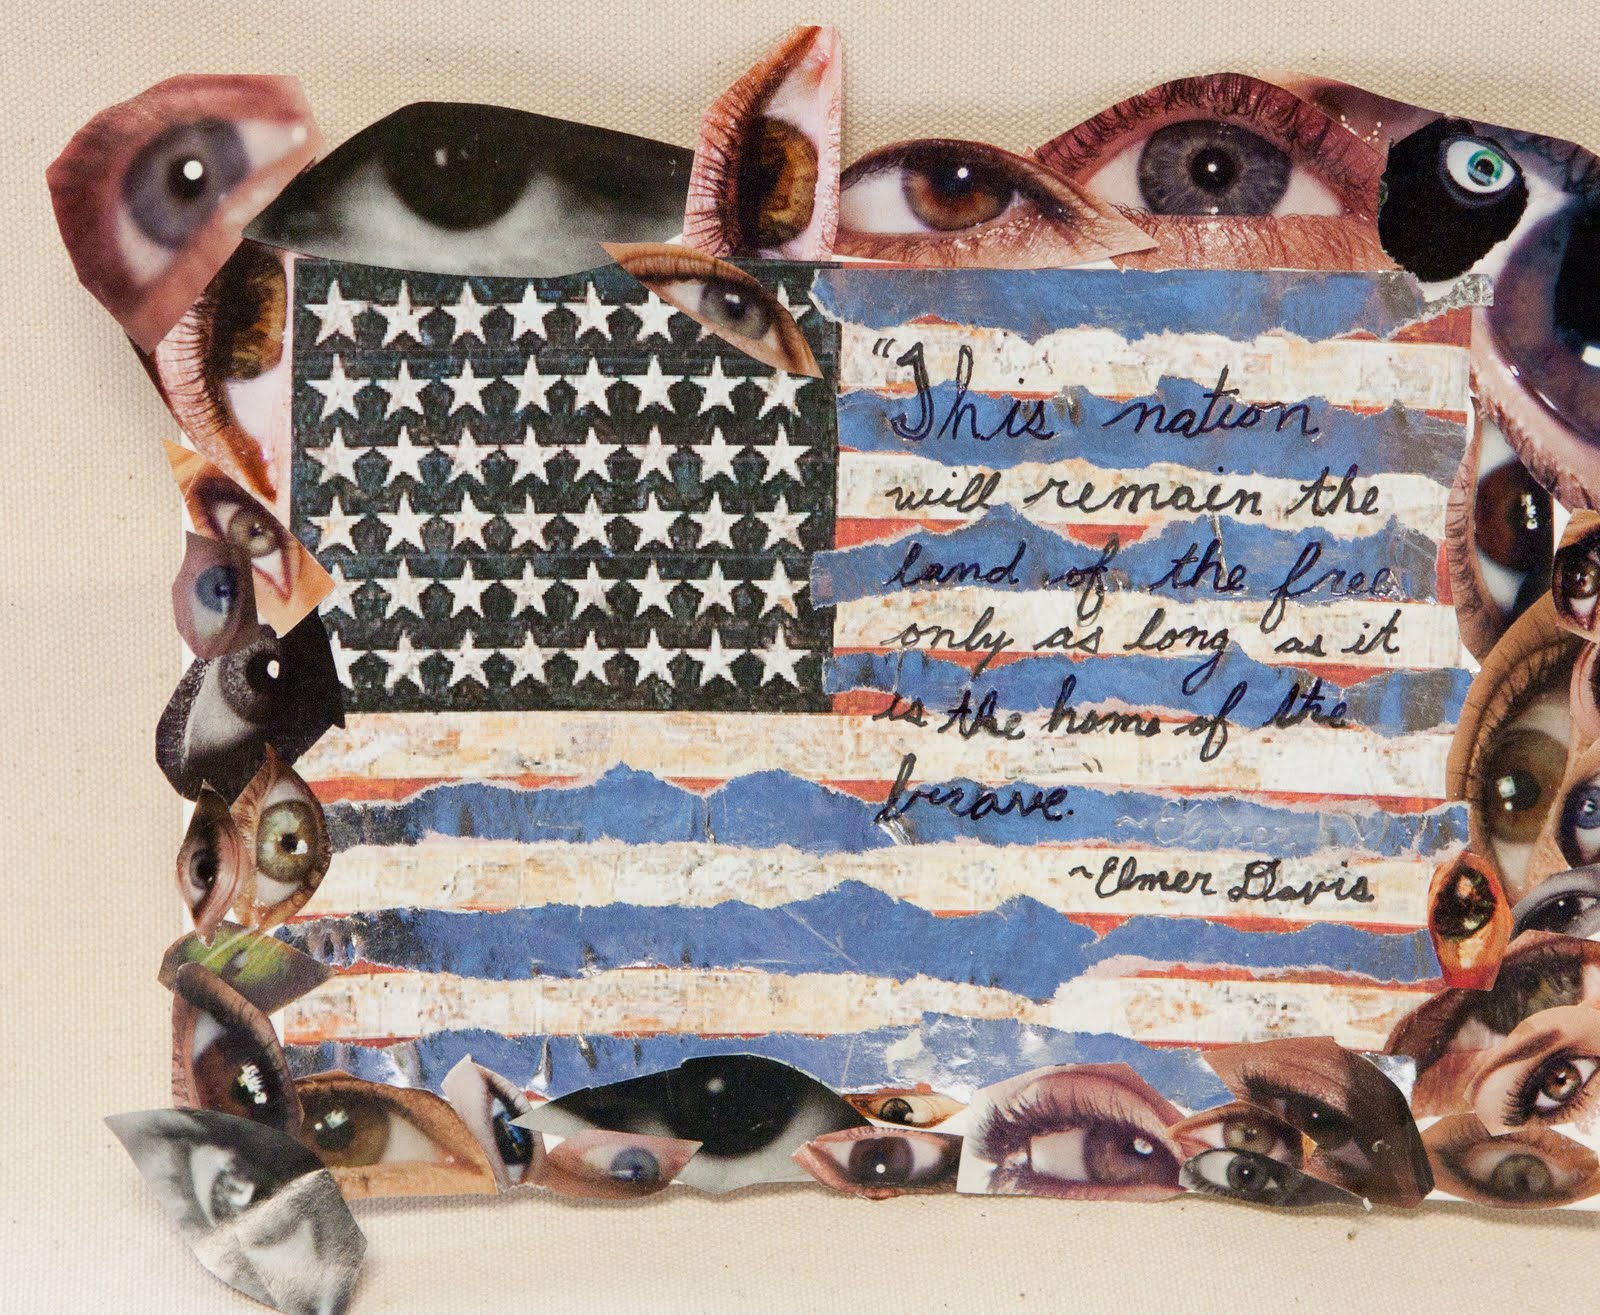 "This nation
will remain the
land of the free
only as long as it
is the home of the
brave."
~Elmer
~Elmer Davis